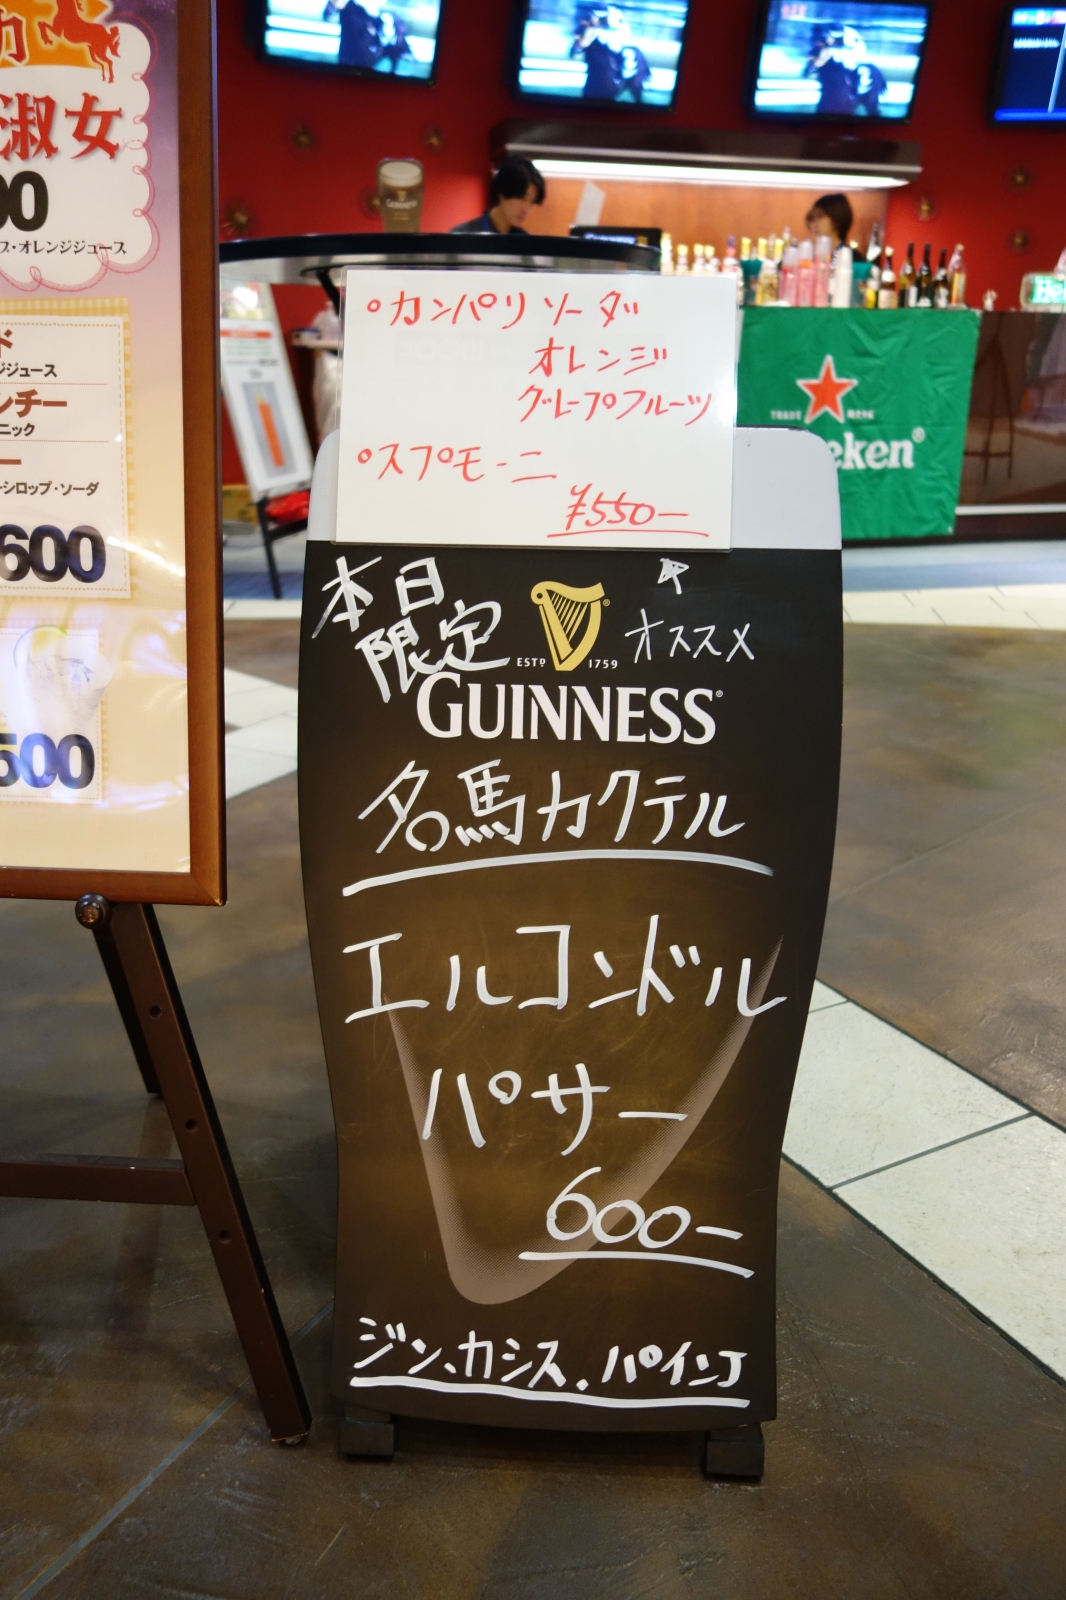 力
淑女
00
・オレンジジュース
ド
ジジュース
ンチー
ニック
ー
ーシロップ・ソーダ
600
500
°カンパリソーダ
オレンジ
グレープフルーツ
°スプモーニ
¥550-
本日
限定
オススメ
ESTD 1759
GUINNESS
名馬カクテル
エルコンドル
パサー
600-
ジン、カシス、パインJ
TRADE MARK
eken
He
GUINNESS